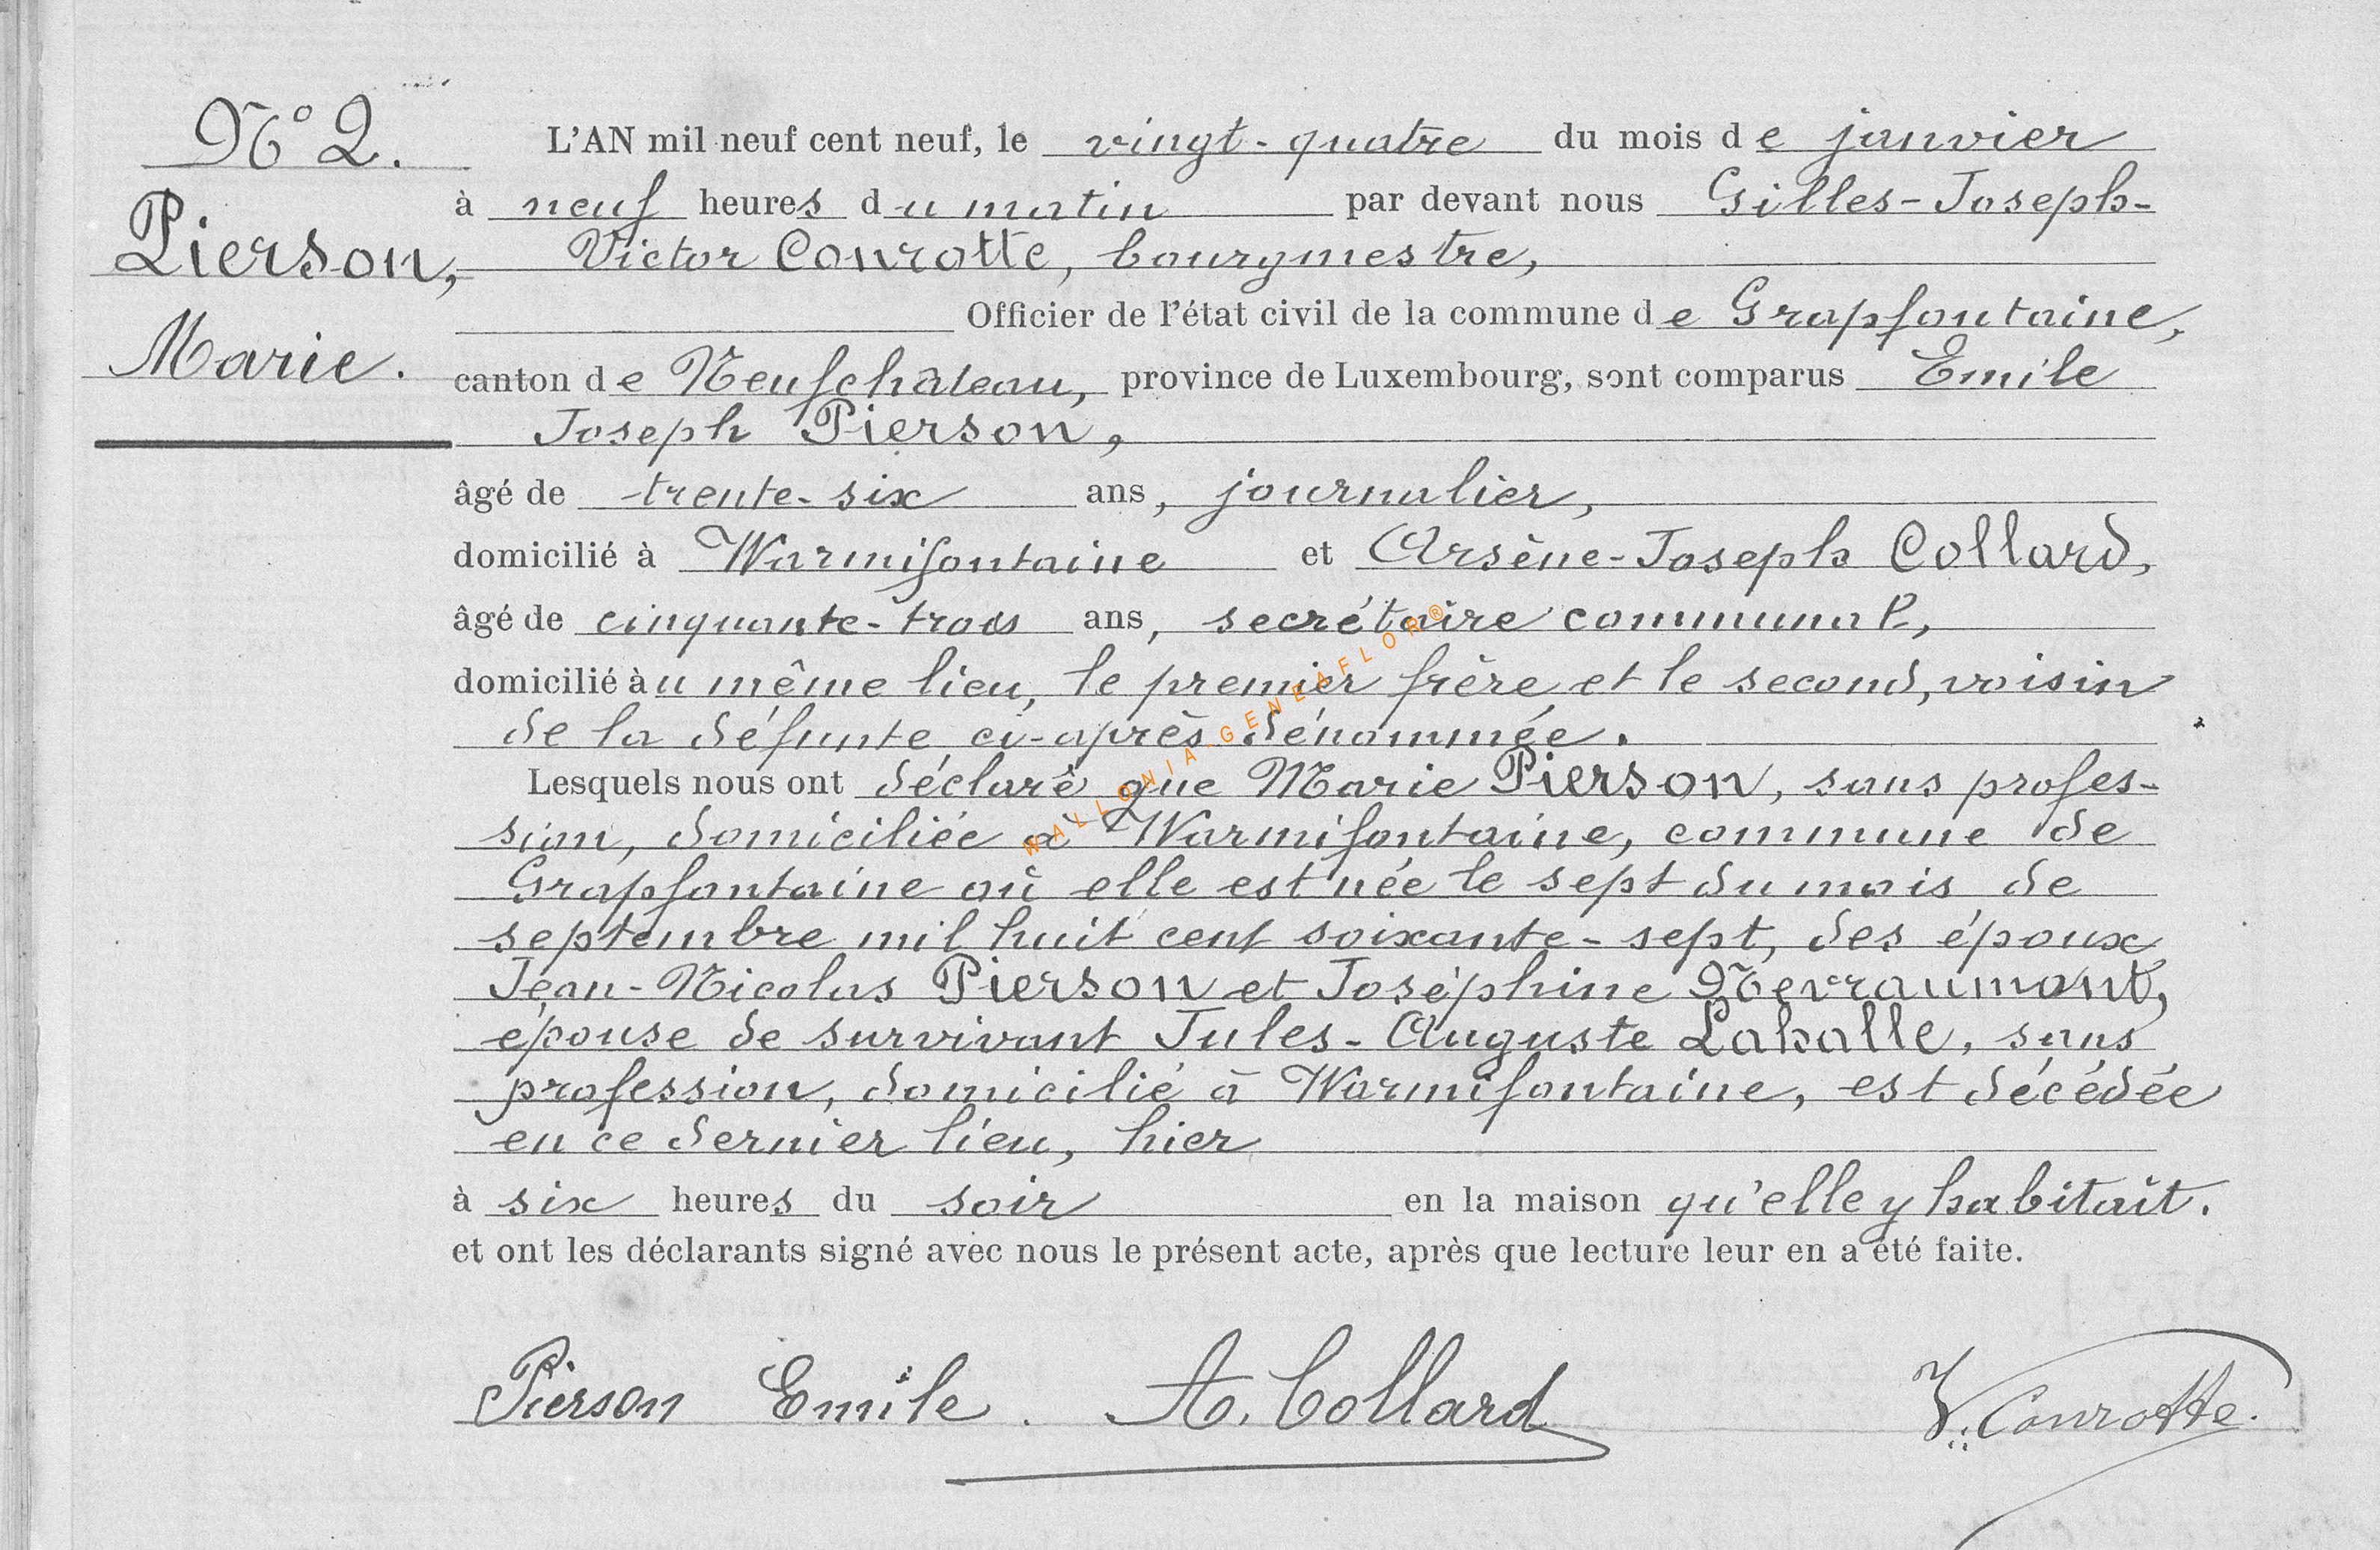 N° 2.
Pierson,
Marie.
L'AN mil neuf cent neuf, le vingt-quatre du mois de janvier
à neuf heures du matin par devant nous Gilles-Joseph-
Victor Conrotte, bourgmestre,
Officier de l'état civil de la commune de Grapfontaine,
canton de Neufchâteau, province de Luxembourg, sont comparus Emile
Joseph Pierson,
âgé de trente-six ans, journalier,
domicilié à Warmifontaine et Arsène-Joseph Collard,
âgé de cinquante-trois ans, secrétaire communal,
domicilié au même lieu, le premier frère et le second, voisin
de la défunte ci-après dénommée.
Lesquels nous ont déclaré que Marie Pierson, sans profes-
sion, domiciliée à Warmifontaine, commune de
Grapfontaine où elle est née le sept du mois de
septembre mil huit cent soixante-sept, des époux
Jean-Nicolas Pierson et Joséphine Nevraumont,
épouse de survivant Jules-Auguste Lahalle, sans
profession, domicilié à Warmifontaine, est décédée
en ce dernier lieu, hier
à six heures du soir en la maison qu'elle y habitait.
et ont les déclarants signé avec nous le présent acte, après que lecture leur en a été faite.
Pierson Emile. A. Collard V. Conrotte.
WALLONIA-GENEAFLOR®